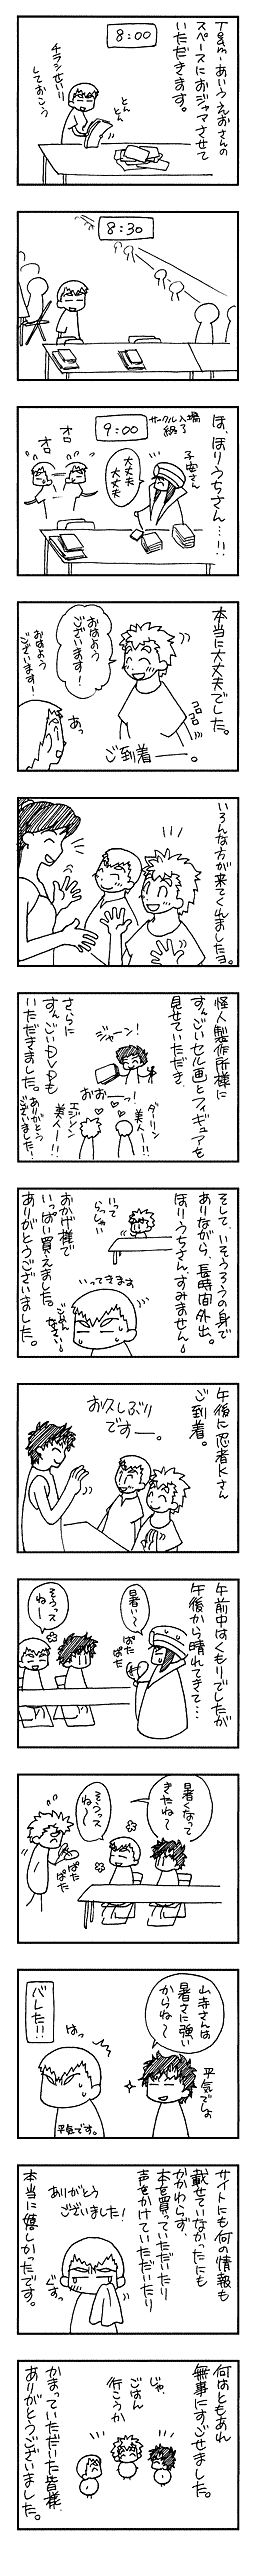 8:00
Team-あいうえおさんの
スペースにおジャマさせて
いただきます。
とん
とん
チラシせいり
しておこう
8:30
9:00
サークル入場
終了
ほ、ほりうちさん…!!
子安さん
大丈夫
大丈夫
オロ
オロ
本当に大丈夫でした。
おはよう
ございます!
コロコロ
ご到着ーー。
あっ
おはよう
ございます!
いろんな方が来てくれましたヨ。
怪人製作所様に
すんごいセル画とフィギュアを
見せていただき、
ジャーン!
おおーっ!
ダーリン
美人ー!!
美人ー!!
さらに
すんごいDVDも
いただきました。
ありがとう
ございました!
そして、いそうろうの身で
ありながら、長時間外出。
ほりうちさん、すみません。
いって
らっしゃい
いってきます
おかげ様で
いっぱい買えました。
ありがとうございました。
ごめん
なさい
午後に忍者Kさん
ご到着。
お久しぶり
ですーー。
午前中はくもりでしたが
午後から晴れてきて…
暑い〜
ぱた
ぱた
そうっス
ねー
暑くなって
きたね〜
そうっス
ね〜
ぱた
ぱた
山寺さんは
暑さに強い
からね〜
平気でしょ
はっ
バレた!!
平気です。
サイトにも何の情報も
載せていなかったにも
かかわらず、
本を買っていただいたり
声をかけていただいたり
ありがとう
ございました!
ぐすっ
本当に嬉しかったです。
何はともあれ
無事にすごせました。
じゃ、
ごはん
行こうか
かまっていただいた皆様、
ありがとうございました。